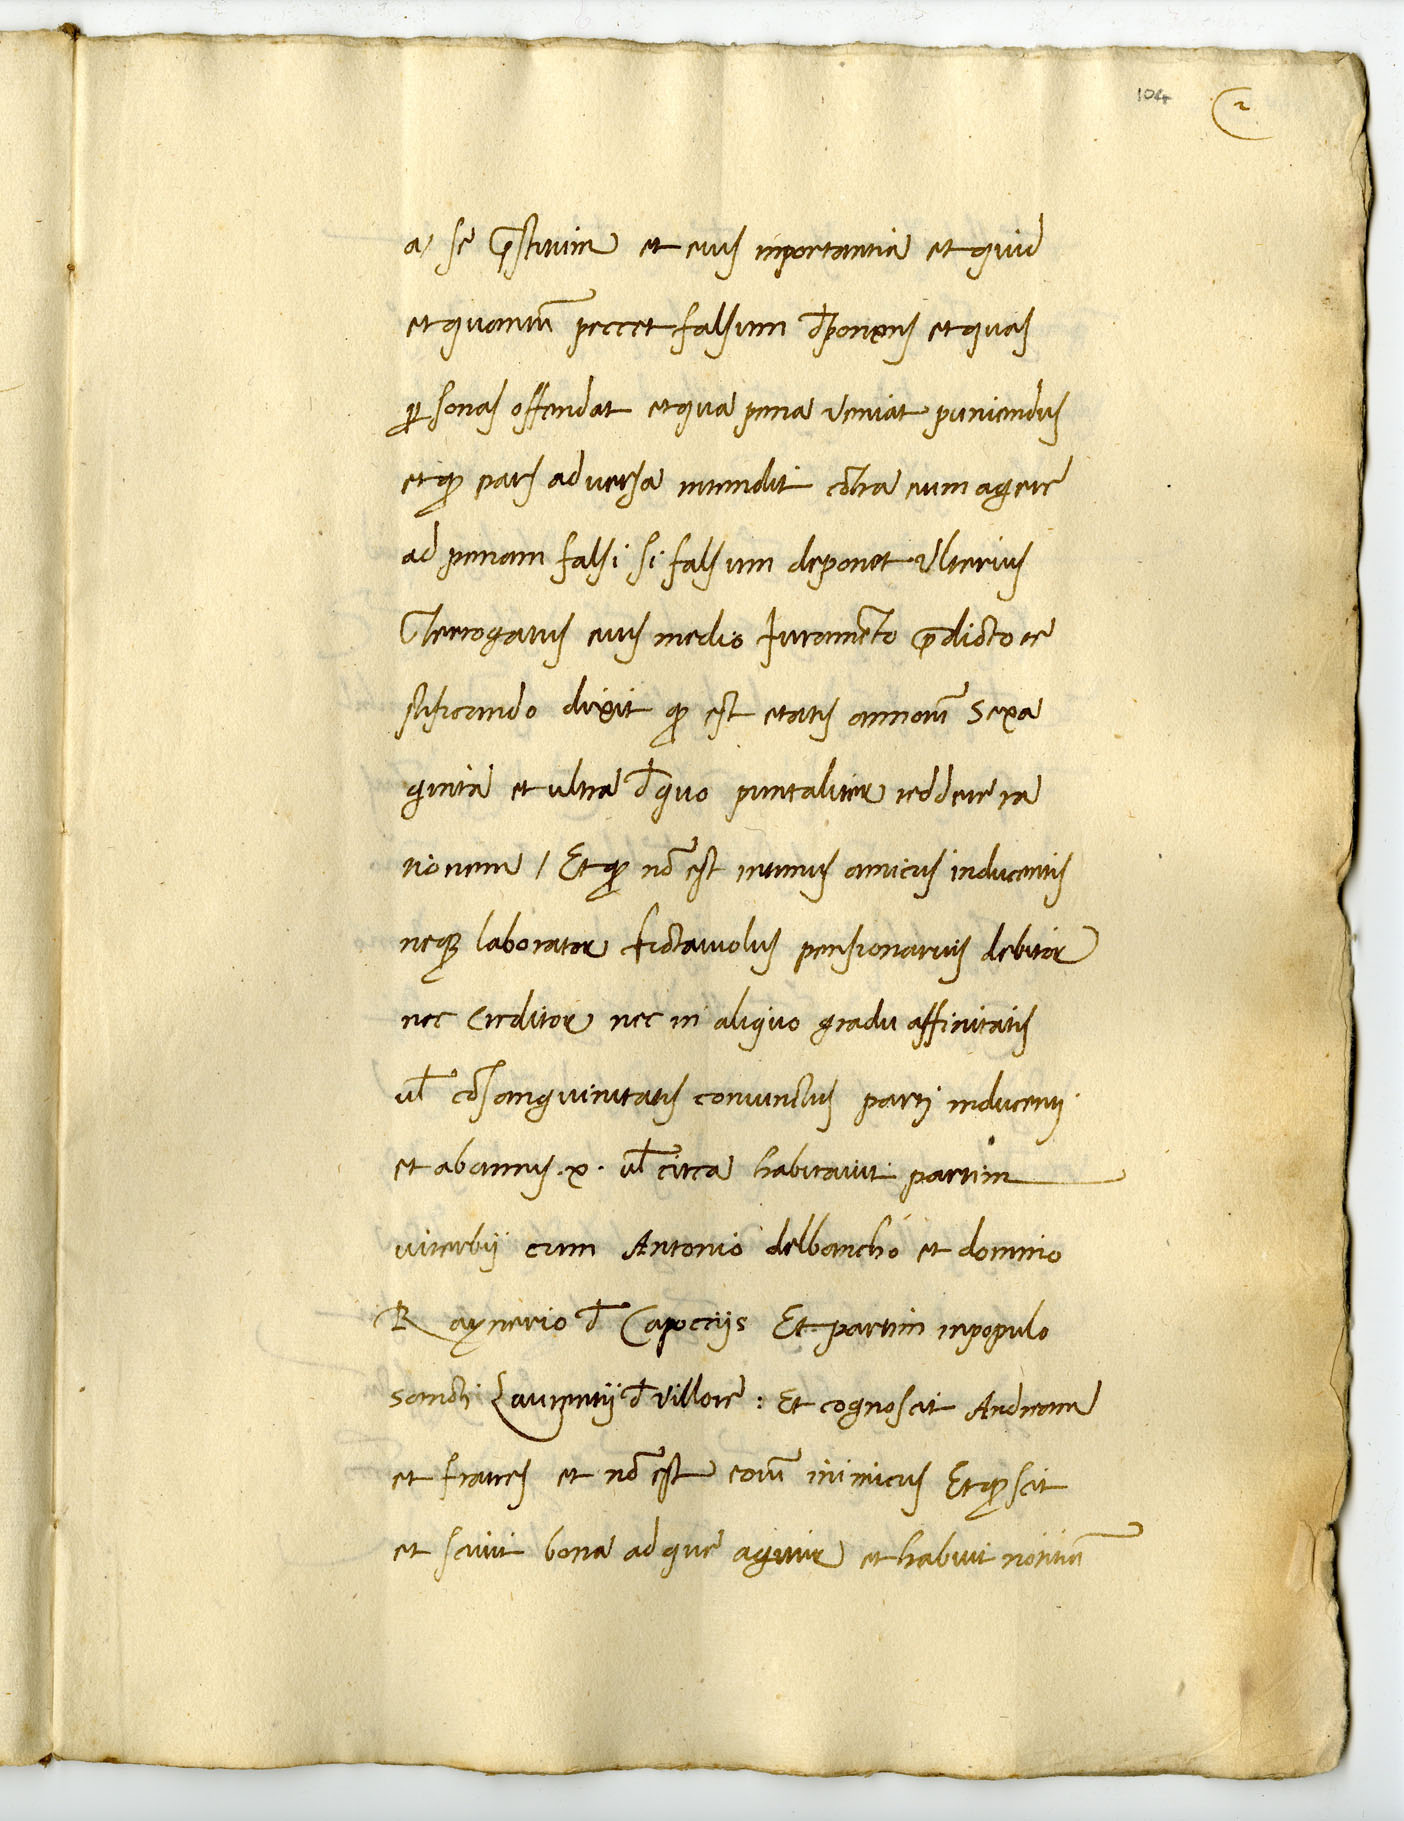 104 2
a se p̄stitum et eius inportantia et quid
et quantū peccet falsum d̄ponens et quas
ꝑsonas offendat et qua pena veniat puniendus
et qꝫ pars adversa intendit cōtra eum agere
ad penam falsi si falsum deponet Ulterius
Īterrogatus eius medio Iuramēto p̄dicto te
stificando dixit qꝫ est etatis annorū sexa
ginta et ultra d̄ quo puntaliter reddere ra
tionem / Et qꝫ nō est intimus amicus inducentis
neqꝫ laborator fictaiuolus pensionarius debitor
nec Creditor nec in aliquo gradu affinitatis
ul̄ cōsanguinitatis coniunctus parti inducenti
et ab annis .x. ul̄ circa habitavit partim
viterbij cum Antonio delbancho et domino
Raynerio d̄ Capoccijs Et partim in populo
sancti Laurentij d̄ Villore : Et cognoscit Andream
et fratres et nō est eorū inimicus Et qꝫ scit
et scivit bona ad que agitur et habuit notitiā